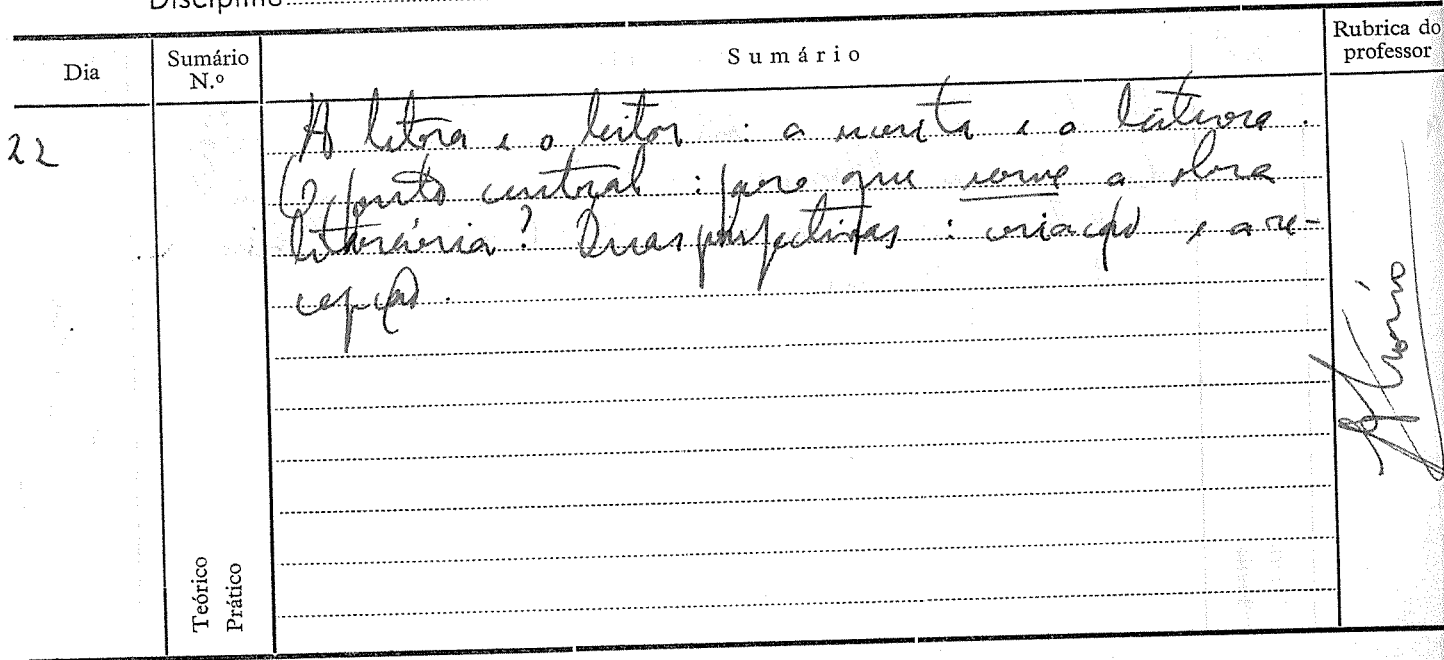 Disciplina
Dia
Sumário N.º
Sumário
Rubrica do professor
22
A leitora e o leitor : a escrita e a leitura.
O ponto central : para que serve a obra
literária? Duas perspectivas : criação e a re-
cepção.
Teórico
Prático